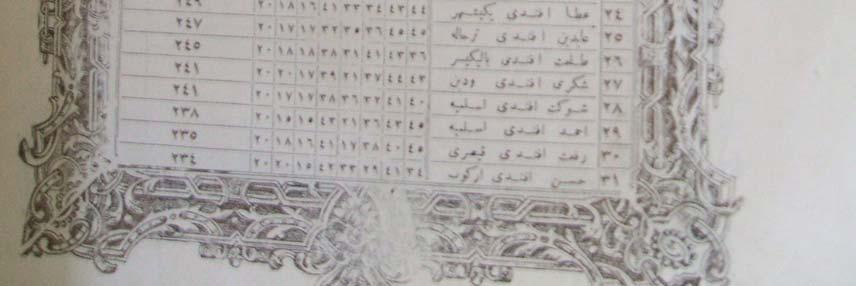 ٢٤ عطا افندی یکیشهر ٤٤ ٤٣ ٣٤ ٣٣ ٤١ ١٦ ١٨ ٢٠ ٢٤٩
٢٥ عابدین افندی ترحاله ٤٥ ٤٥ ٣٦ ٣٥ ٣٢ ١٧ ١٧ ٢٠ ٢٤٧
٢٦ طلعت افندی بالیکسر ٣٦ ٤٣ ٤١ ٣١ ٣٨ ١٨ ١٨ ٢٠ ٢٤٥
٢٧ شکری افندی ودین ٤٣ ٤٤ ٣٧ ٢١ ٣٩ ١٧ ٢٠ ٢٠ ٢٤١
٢٨ شوکت افندی اسلمیه ٤٠ ٤١ ٣٢ ٣٦ ٣٨ ١٧ ١٧ ٢٠ ٢٤١
٢٩ احمد افندی اسلمیه ٤٥ ٤٣ ٣٦ ٢١ ٤٣ ١٥ ١٥ ٢٠ ٢٣٨
٣٠ رفعت افندی قیصری ٤٥ ٤٠ ٣٨ ١٧ ٤١ ١٦ ١٨ ٢٠ ٢٣٥
٣١ حسن افندی ارکوب ٣٤ ٤١ ٢٩ ٣٣ ٤٢ ١٥ ٢٠ ٢٠ ٢٣٤